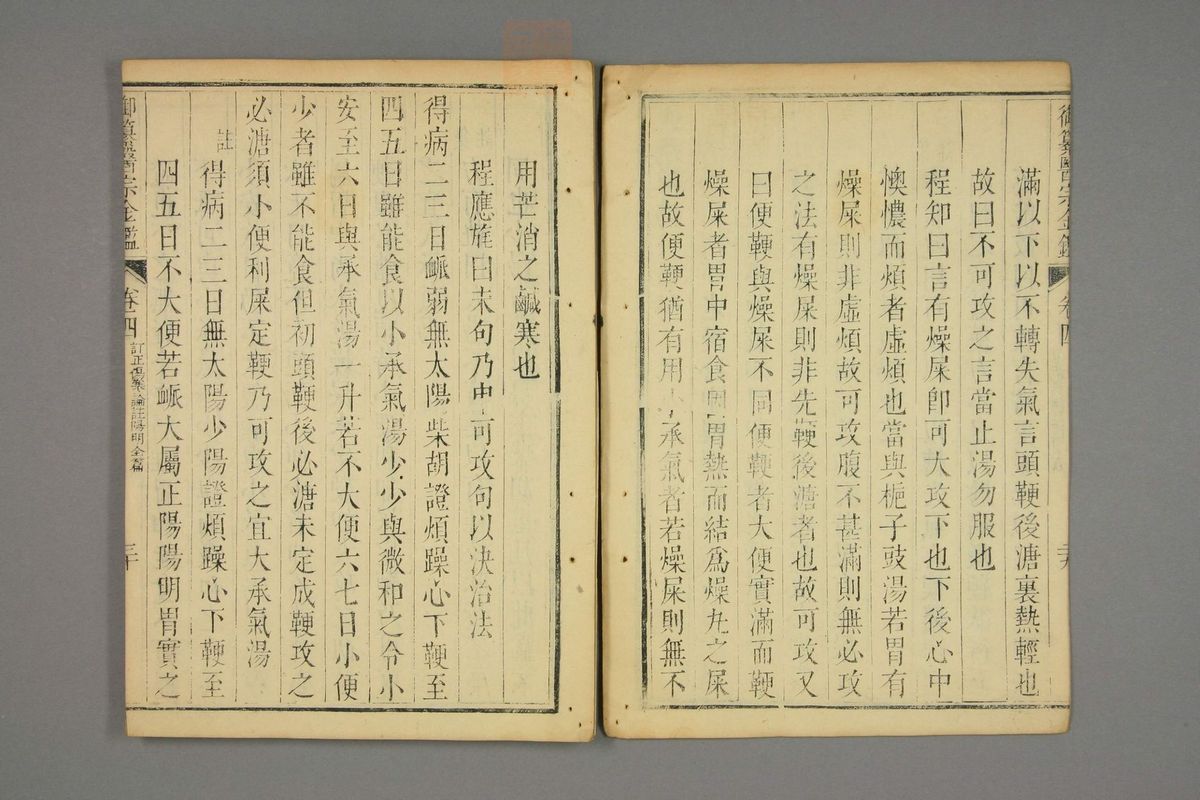 御纂醫宗金鑑 卷四 二十九
滿以下以不轉失氣言頭鞕後溏裏熱輕也
故曰不可攻之言當止湯勿服也
程知曰言有燥屎卽可大攻下也下後心中
懊憹而煩者虛煩也當與梔子豉湯若胃有
燥屎則非虛煩故可攻腹不甚滿則無必攻
之法有燥屎則非先鞕後溏者也故可攻又
曰便鞕與燥屎不同便鞕者大便實滿而鞕
燥屎者胃中宿食因胃熱而結爲燥丸之屎
也故便鞕猶有用小承氣者若燥屎則無不
用芒消之鹹寒也
程應旄曰末句乃中可攻句以決治法
得病二三日脈弱無太陽柴胡證煩躁心下鞕至
四五日雖能食以小承氣湯少少與微和之令小
安至六日與承氣湯一升若不大便六七日小便
少者雖不能食但初頭鞕後必溏未定成鞕攻之
必溏須小便利屎定鞕乃可攻之宜大承氣湯
註 得病二三日無太陽少陽證煩躁心下鞕至
四五日不大便若脈大屬正陽陽明胃實之
御纂醫宗金鑑 卷四 訂正傷寒論註陽明全篇 三十